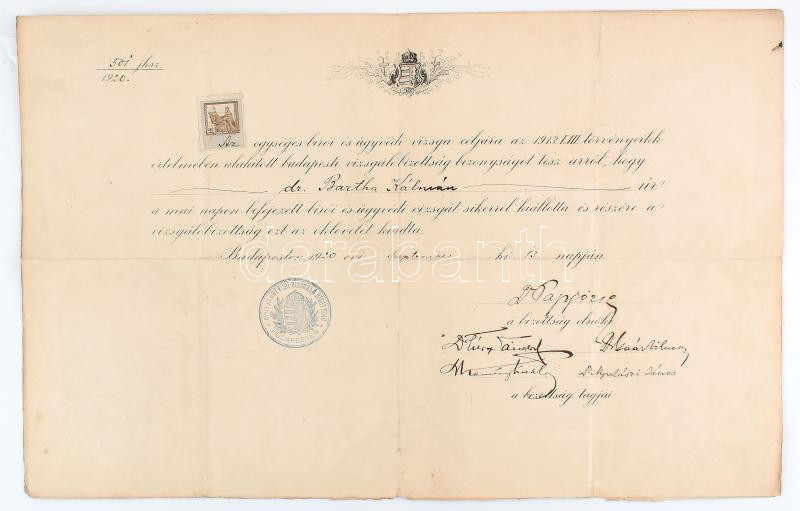 501 jksz.
1920.
Az egységes birói és ügyvédi vizsga céljára az 1913:LIII. törvénycikk
értelmében alakitott budapesti vizsgálóbizottság bizonyságot tesz arról, hogy
dr. Bartha Kálmán úr
a mai napon befejezett birói és ügyvédi vizsgát sikerrel kiállotta és részére a
vizsgálóbizottság ezt az oklevelet kiadta.
Budapesten 1920 évi szeptember hó 13 napján.
darabanth
BUDAPESTEN
a bizottság elnöke
Dr Nyulászi János
a bizottság tagjai